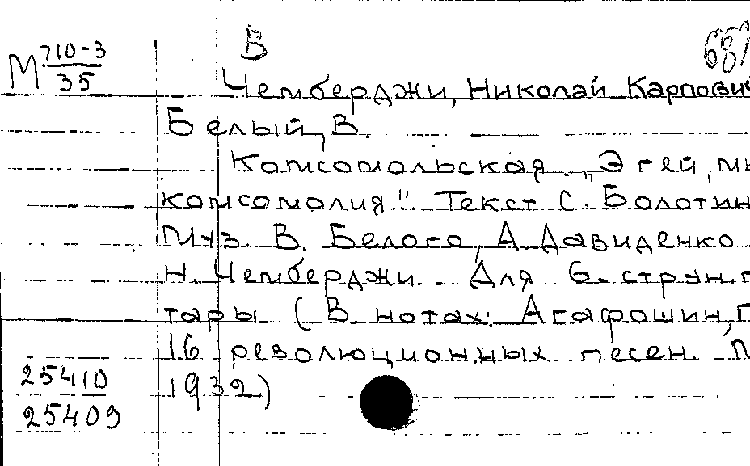 В
687
М 710-3
35
Чемберджи, Николай Карпович
Белый, В.
Комсомольская „Эгей, мы
комсомолия!" Текст С. Болотин
Муз. В. Белого, А. Давиденко
Н. Чемберджи. Для 6-струн. г
тары (В нотах: Агафошин, П
16 революционных песен. М
1932)
25410
25409